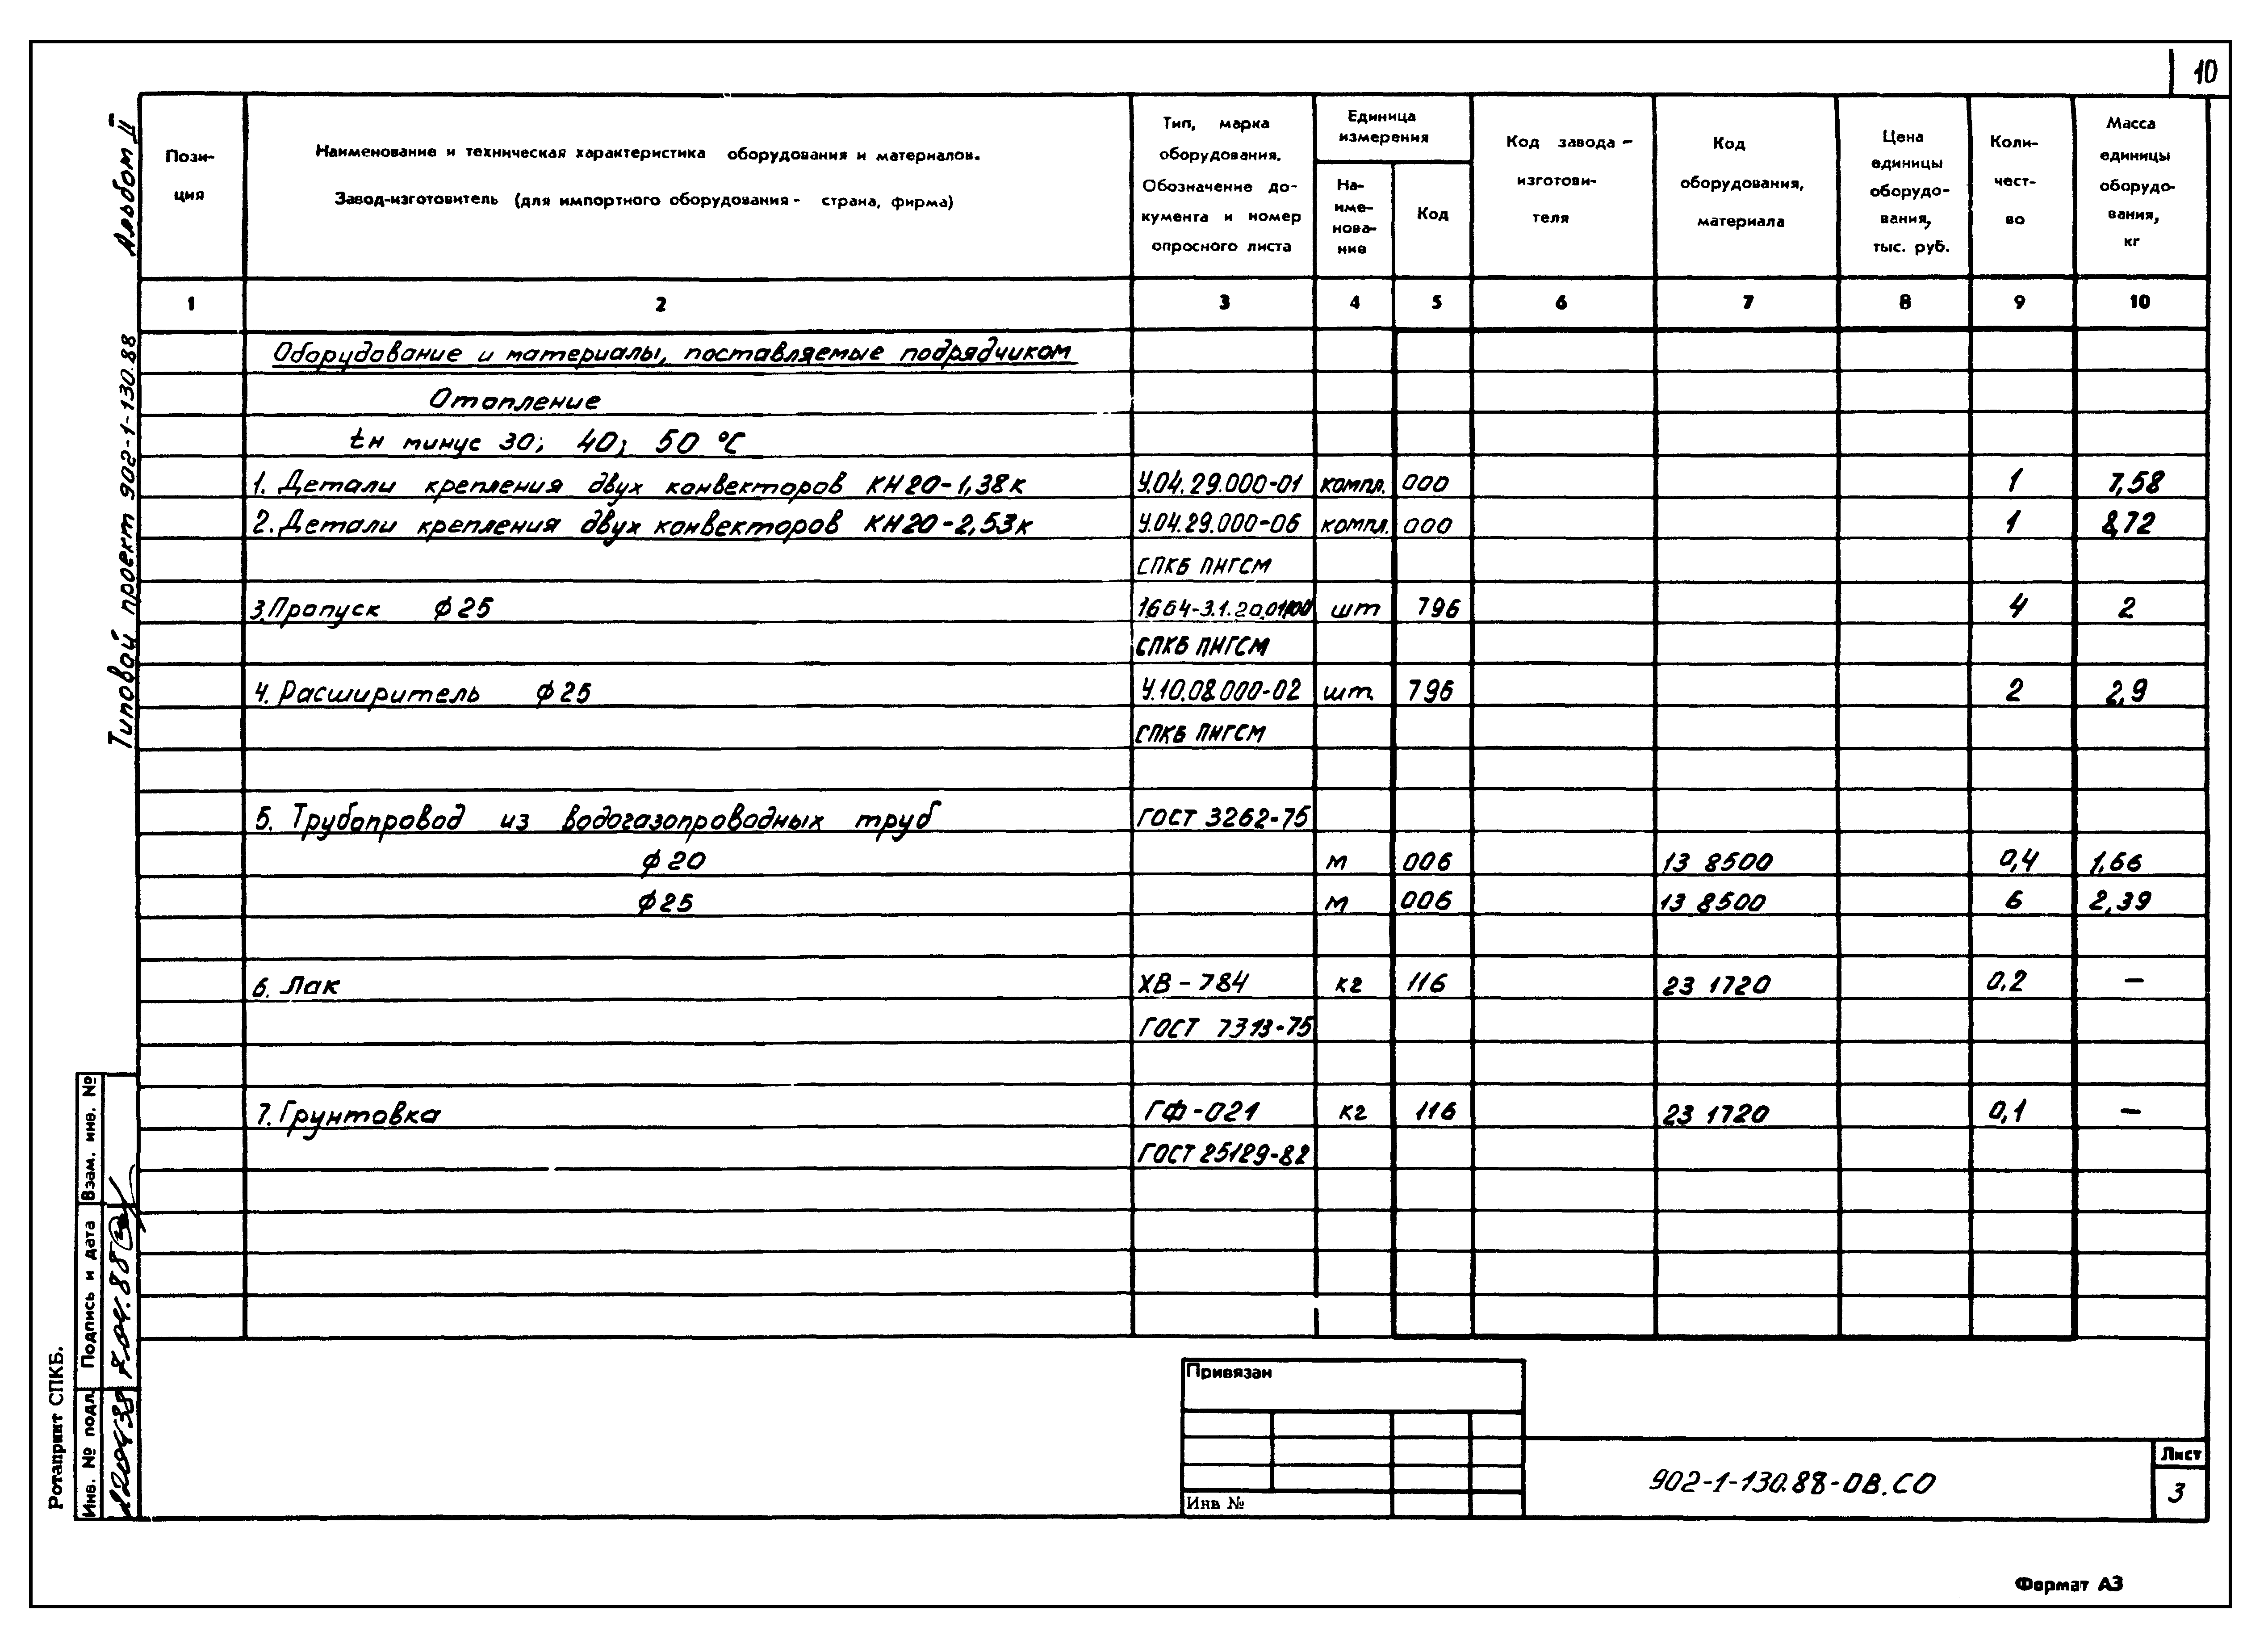 10
Альбом II
Типовой проект 902-1-130.88
Пози-
ция
Наименование и техническая характеристика оборудования и материалов.
Завод-изготовитель (для импортного оборудования - страна, фирма)
Тип, марка
оборудования.
Обозначение до-
кумента и номер
опросного листа
Единица
измерения
На-
име-
нова-
ние
Код
Код завода -
изготови-
теля
Код
оборудования,
материала
Цена
единицы
оборудо-
вания,
тыс. руб.
Коли-
чест-
во
Масса
единицы
оборудо-
вания,
кг
1 2 3 4 5 6 7 8 9 10
Оборудование и материалы, поставляемые подрядчиком
Отопление
tн минус 30; 40; 50 °С
1. Детали крепления двух конвекторов КН20-1,38к У.04.29.000-01 компл. 000 1 7,58
2. Детали крепления двух конвекторов КН20-2,53к У.04.29.000-06 компл. 000 1 8,72
СПКБ ПНГСМ
3. Пропуск ф 25 шт 796 4 2
СПКБ ПНГСМ
4. Расширитель ф 25 У.10.08.000-02 шт. 796 2 2,9
СПКБ ПНГСМ
5. Трубопровод из водогазопроводных труб ГОСТ 3262-75
ф 20 м 006 13 8500 0,4 1,66
ф 25 м 006 13 8500 6 2,39
6. Лак ХВ - 784 кг 116 23 1720 0,2 —
ГОСТ 7313-75
7. Грунтовка ГФ-021 кг 116 23 1720 0,1 —
ГОСТ 25129-82
Взам. инв. №
Подпись и дата
7.04.88
Инв. № подл.
Ротапринт СПКБ.
Привязан
Инв №
902-1-130.88-ОВ.СО
Лист
3
Формат А3